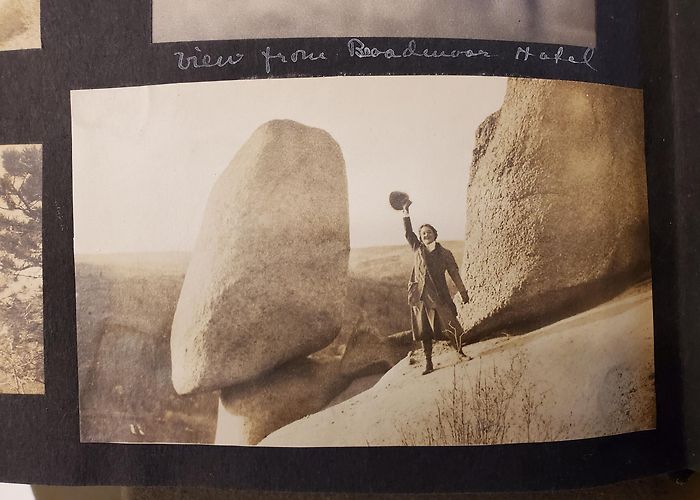 View from Broadmoor Hotel